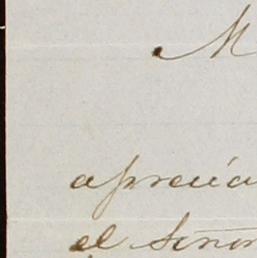 M
aprecia
el Señor